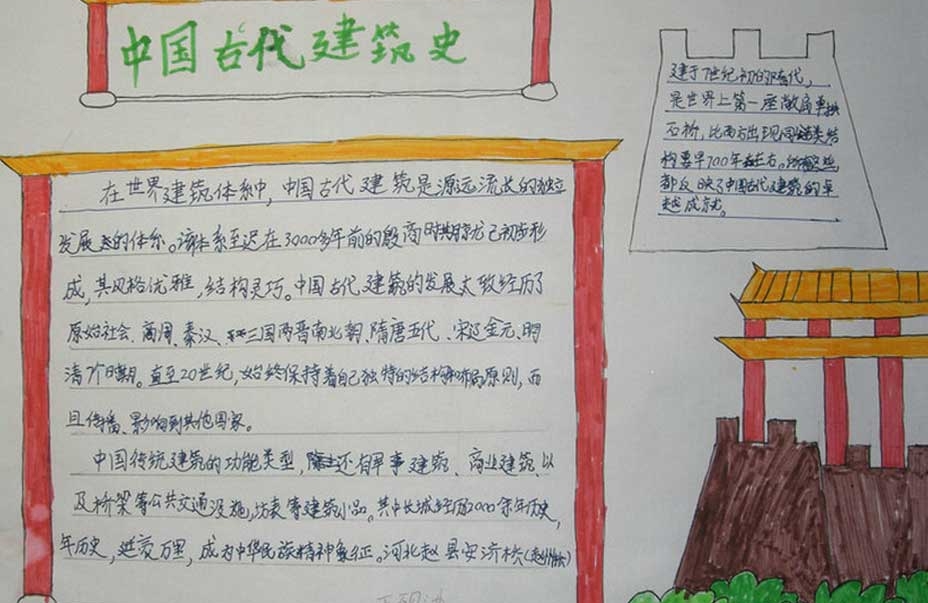 中国古代建筑史
在世界建筑体系中，中国古代建筑是源远流长的独立
发展的体系。该体系至迟在3000多年前的殷商时期就已初步形
成，其风格优雅，结构灵巧。中国古代建筑的发展大致经历了
原始社会、商周、秦汉、三国两晋南北朝、隋唐五代、宋辽金元、明
清7个时期。直至20世纪，始终保持着自己独特的结构和布局原则，而
且传播、影响到其他国家。
中国传统建筑的功能类型，还有军事建筑、商业建筑、以
及桥梁等公共交通设施，坊表等建筑小品。其中长城经历2000余年历史，
年历史，延袤万里，成为中华民族精神象征。河北赵县安济桥(赵州桥)
建于7世纪初的隋代，
是世界上第一座敞肩单拱
石桥，比西方出现同类结
构要早700年左右。这些
都反映了中国古代建筑的卓
越成就。